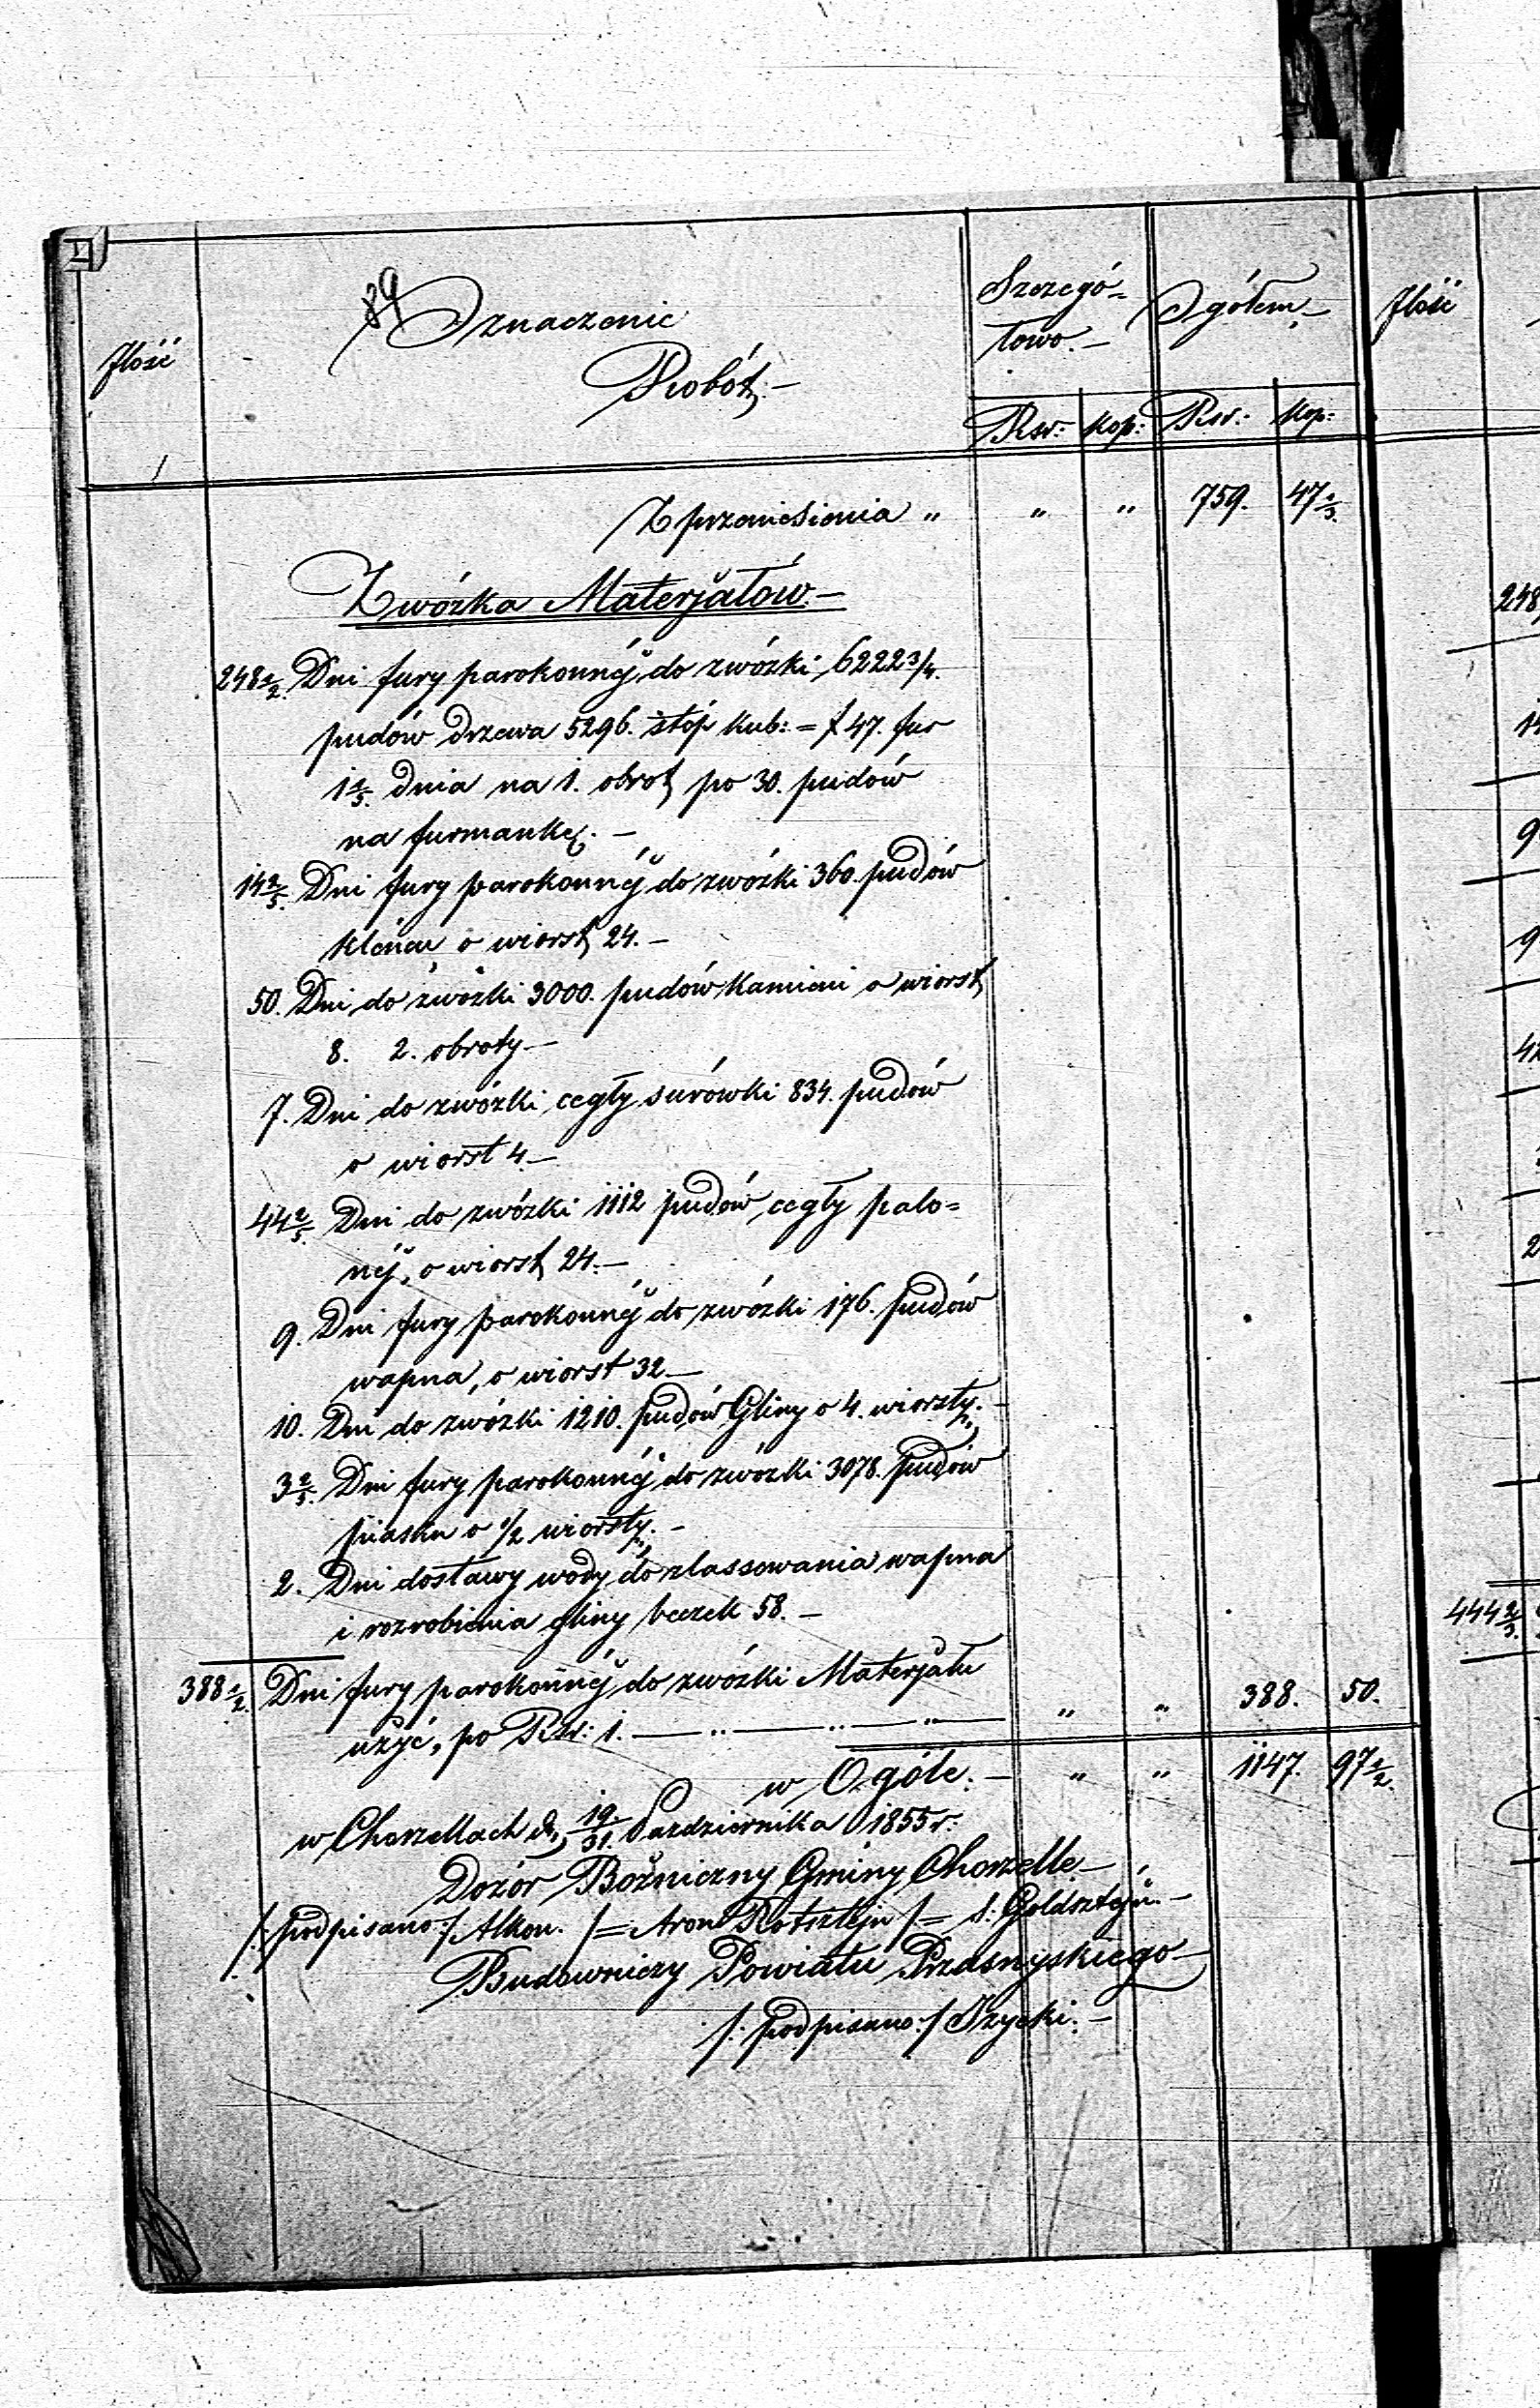 89
Ilość
Oznaczenie
Robót.—
Szczegó-
łowo.—
Ogółem.—
Ilość
Rsr: kop: Rsr: kop:
Z przeniesienia „ „ „ 759. 47½.
Zwózka Materjałów.—
248½. Dni fury parokonnéj do zwózki 6222¾.
pudów drzewa 5296. stóp kub: = 147. fur
1⅔. dnia na 1. obrot po 30. pudów
na furmankę.—
14⅖. Dni fury parokonnéj do zwózki 360. pudów
o wiorst 24.—
50. Dni do zwózki 3000. pudów kamieni o wiorst
8. 2. obroty—
7. Dni do zwózki cegły surówki 834. pudów
o wiorst 4.—
44⅖. Dni do zwózki 1112 pudów cegły palo=
néj, o wiorst 24.—
9. Dni fury parokonnéj do zwózki 176. pudów
wapna, o wiorst 32—
10. Dni do zwózki 1210. pudów Gliny o 4. wiorsty.—
3⅖. Dni fury parokonnéj do zwózki 3078. pudów
piasku o ½ wiorsty.—
2. Dni dostawy wody do zlassowania wapna
i rozrobienia gliny beczek 58.—
388½. Dni fury parokonnéj do zwózki Materjału
użyć, po Rsr: 1. — „ — „ — „ — „ „ 388. 50.
w Ogóle.— „ „ 1147. 97½.
w Chorzellach d. 19/31. Października 1855 r.
Dozór Bożniczny Gminy Chorzelle—
/:podpisano:/ Alkon. /= Aron Rotsztejn /= S: Goldsztejn.—
Budowniczy Powiatu Przasnyskiego—
/:podpisano:/ Iżycki.—
248
14
9
9
2
444⅖